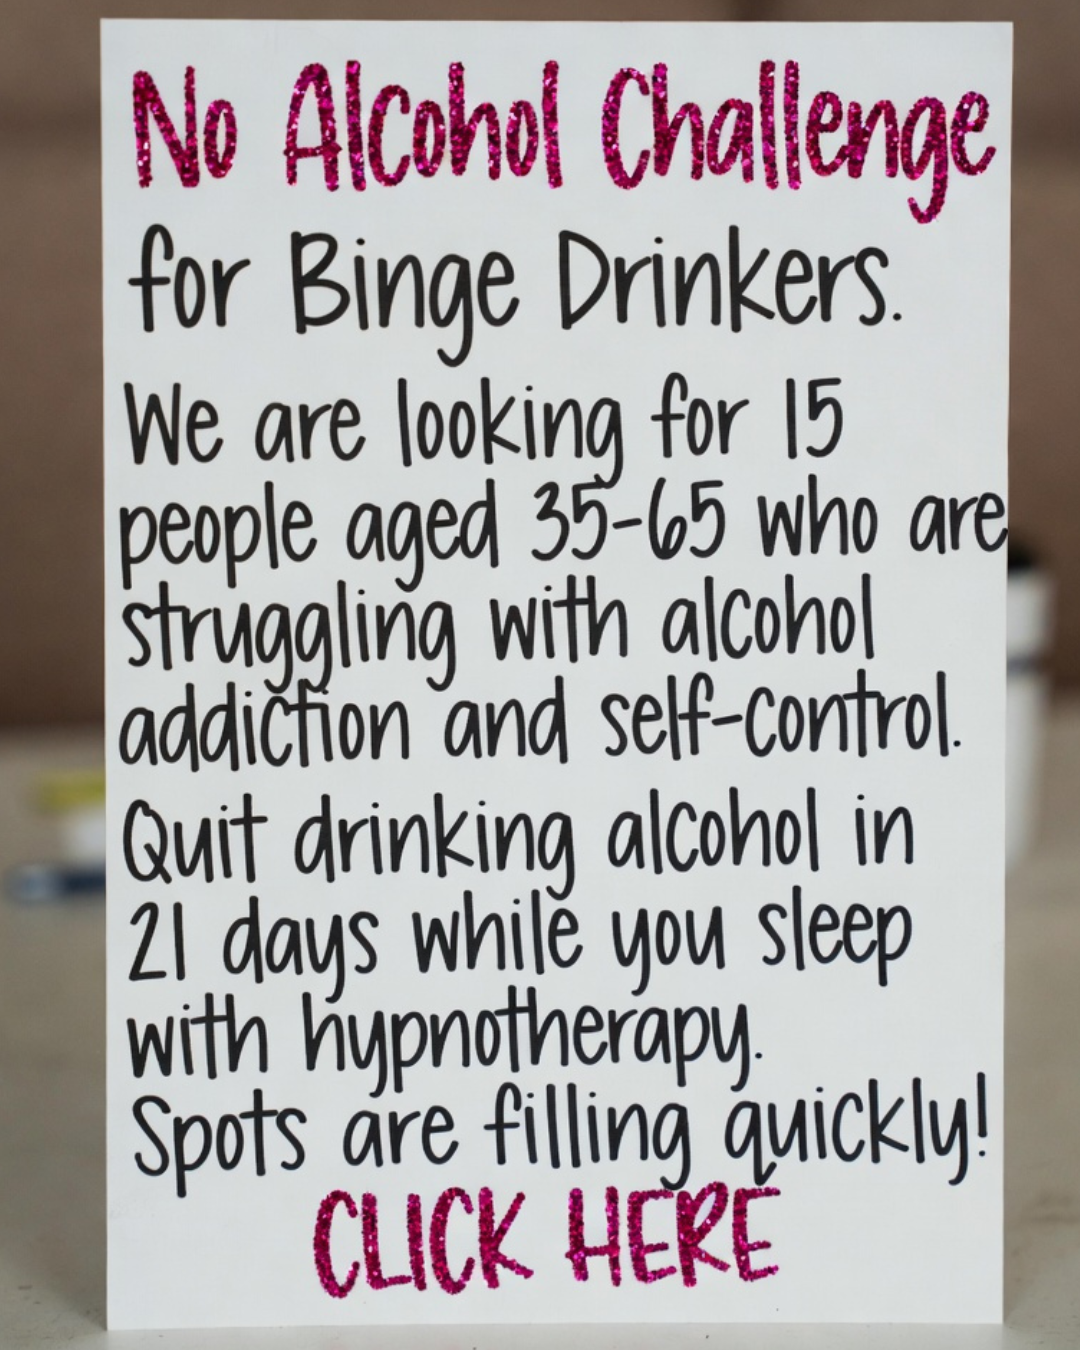 No Alcohol Challenge
for Binge Drinkers.
We are looking for 15
people aged 35-65 who are
struggling with alcohol
addiction and self-control.
Quit drinking alcohol in
21 days while you sleep
with hypnotherapy.
Spots are filling quickly!
CLICK HERE